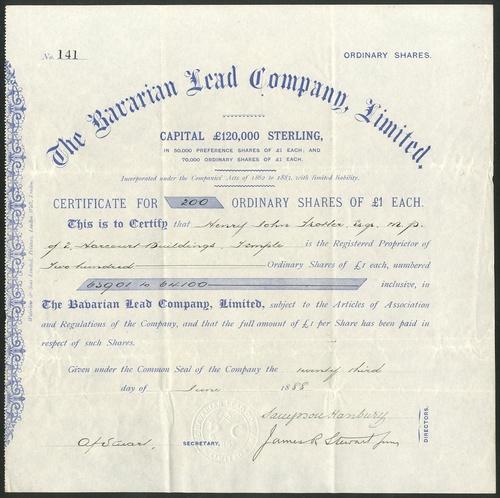 No. 141
ORDINARY SHARES.
The Bavarian Lead Company, Limited.
CAPITAL £120,000 STERLING,
IN 50,000 PREFERENCE SHARES OF £1 EACH; AND
70,000 ORDINARY SHARES OF £1 EACH.
Incorporated under the Companies' Acts of 1862 to 1883, with limited liability.
CERTIFICATE FOR 200 ORDINARY SHARES OF £1 EACH.
This is to Certify that Henry John Trotter, Esqr. M.P.
of 2, Harcourt Buildings, Temple is the Registered Proprietor of
Two hundred Ordinary Shares of £1 each, numbered
63901 to 64100 inclusive, in
The Bavarian Lead Company, Limited, subject to the Articles of Association
and Regulations of the Company, and that the full amount of £1 per Share has been paid in
respect of such Shares.
Given under the Common Seal of the Company the twenty third
day of June 1888
Sampson Hanbury
James R Stewart Junr
DIRECTORS.
SECRETARY,
Waterlow & Sons Limited, Printers, London Wall, London.